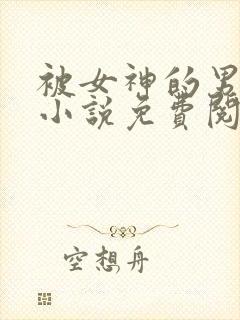 被女神的男
小說免費閱
空想舟